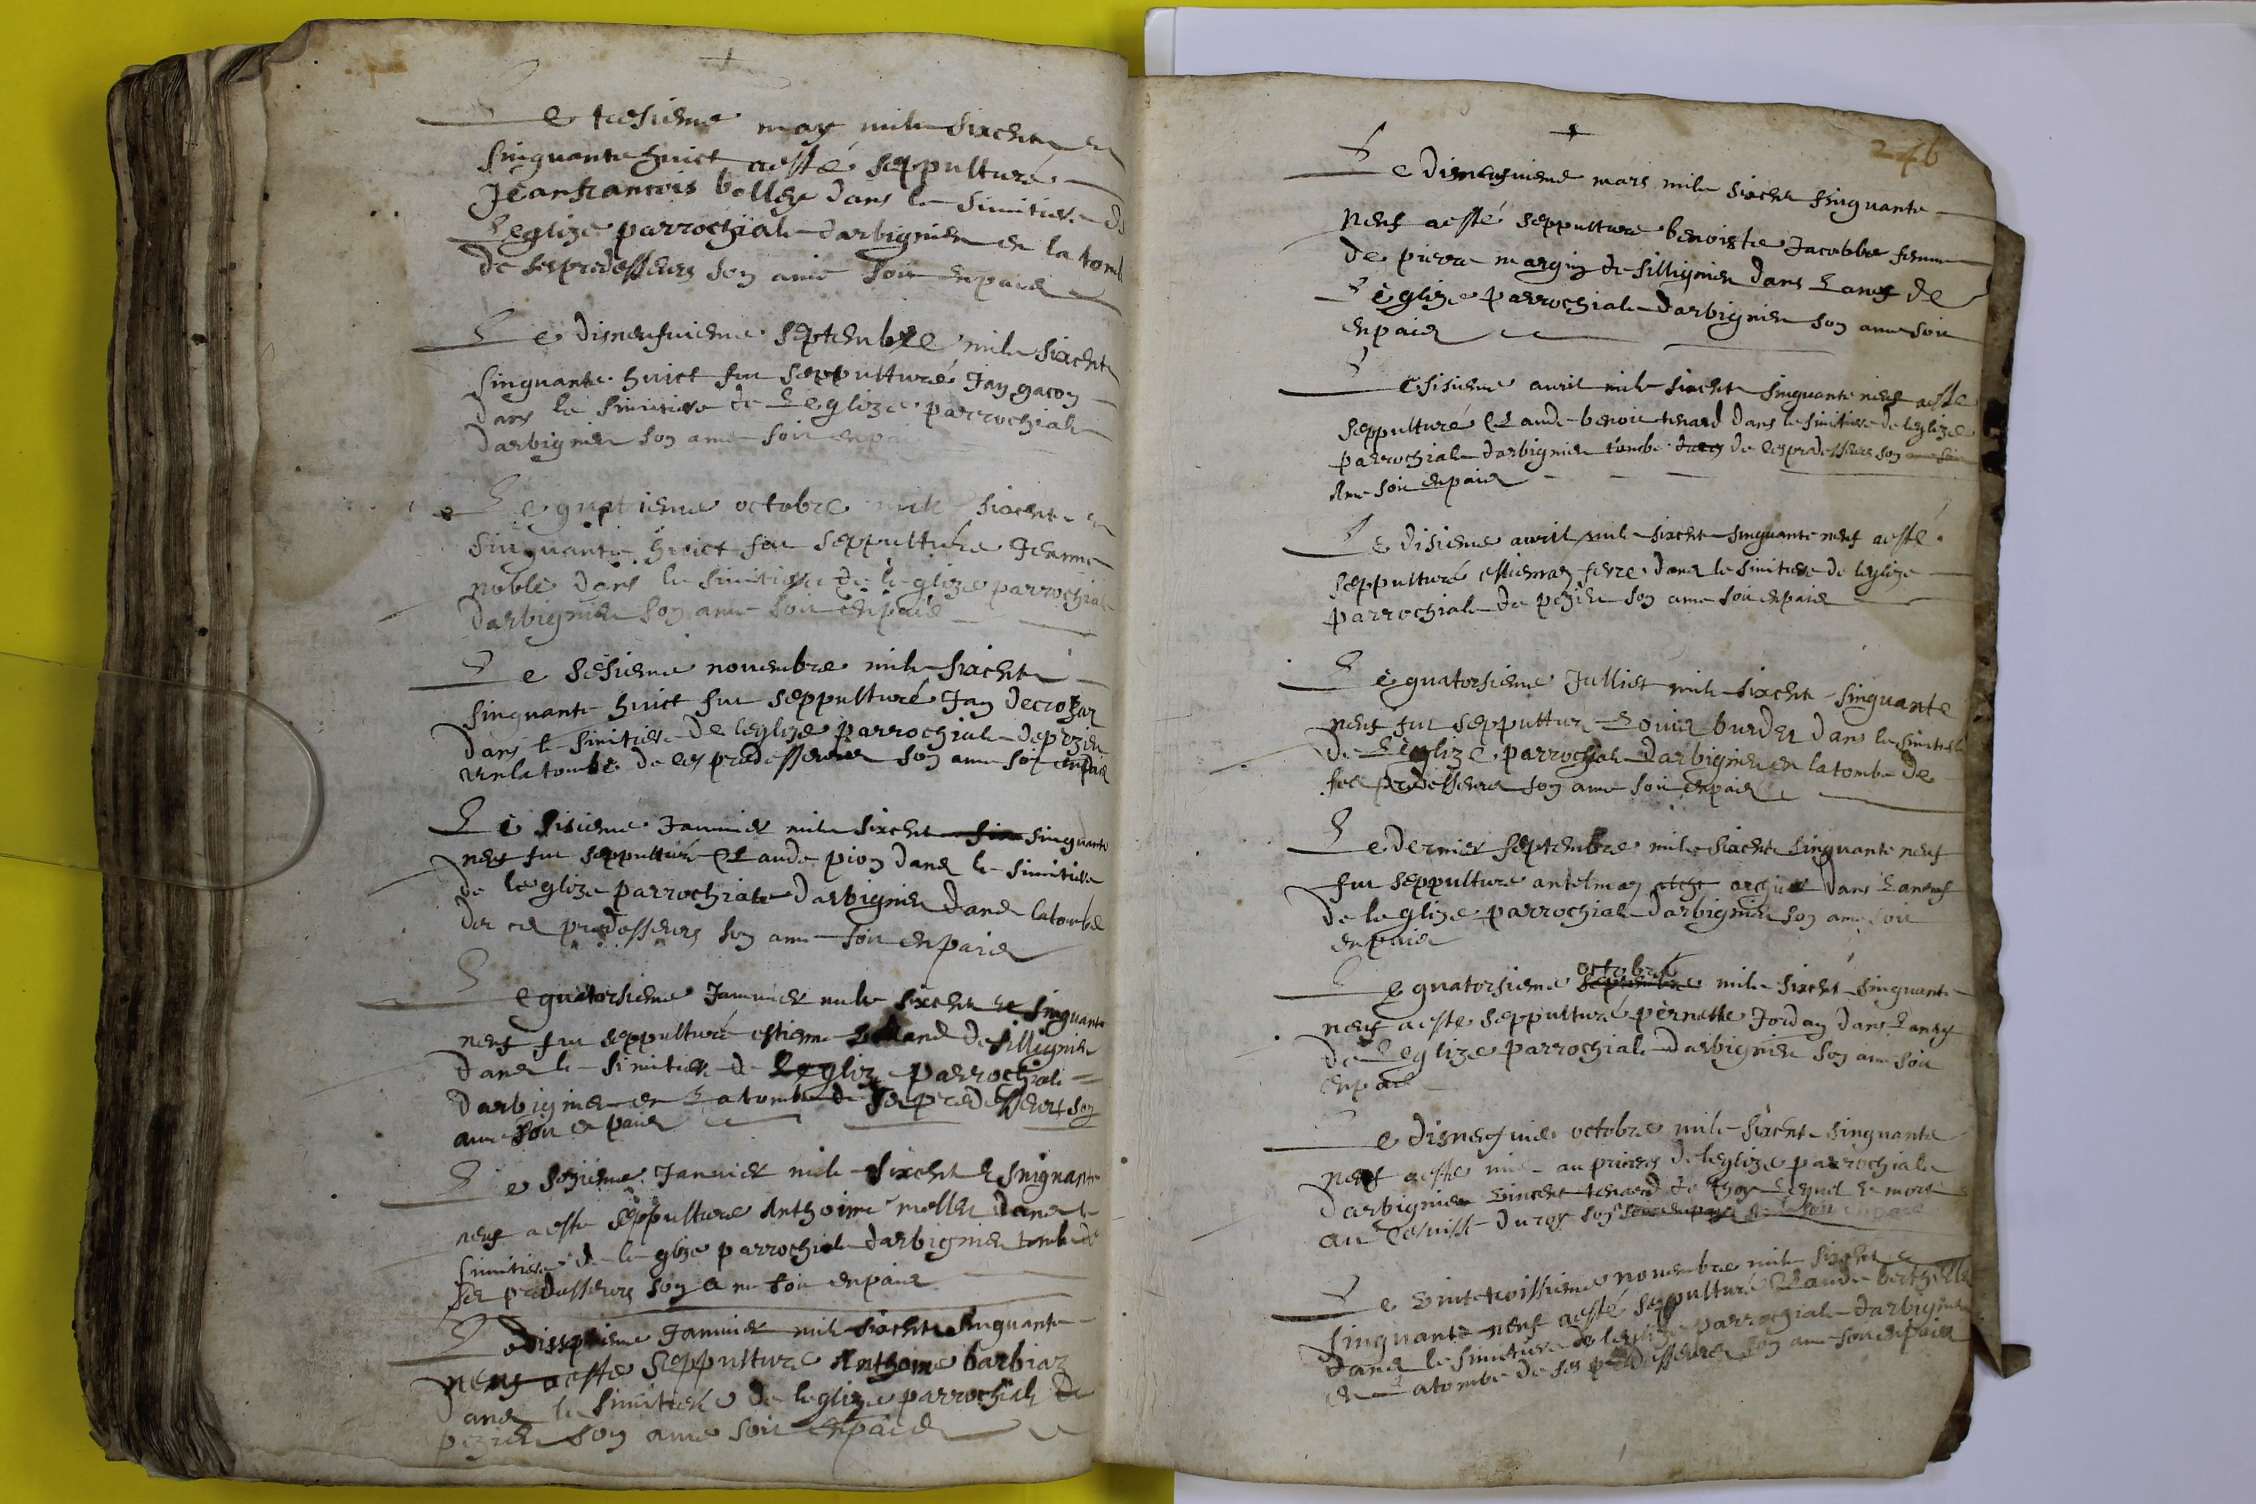 Le tresieme may mile sixcent e
sinquante huict aesté seppulturé
Jeanfrancois bolley dans le simitiere de
Leglize parrochiale darbignieu en la tomb
de ses predesseurs son ame soit enpaix
Le disneufvieme septembre mile sixcent
sinquante huict fut seppulturé Jan gacon
dans le simitiere de Leglize parrochiale
darbignieu son ame soit enpai
Le quatrieme octobre mile sixcent e
sinquante huict fut seppulturée Jeanne
noble dans le simitiere de leglize parrochiale
darbignieu son ame soit enpaix
Le sesieme novembre mile sixcent
sinquante huict fut seppulturé Jan decrozaz
dans le simitiere de leglize parrochiale de pezieu
en latombe de ces predesseurs son ame soit enpaix
Le sisieme Janvier mile sixcent sinquante
neuf fut seppulturé Claude pion dans le simitiere
de leglize parrochiale darbignieu dans latombe
de ces predesseurs son ame soit enpaix
Le quatorsieme Janvier mile sixcent et sinquante
neuf fut seppulturé estienne de sillignieu
dans le simitiere de Leglize parrochiale
darbignieu en Latombe de ses predesseurs son
ame soit enpaix
Le Janvier mile sixcent e sinquante
neuf aesté seppulturé Anthoine mollet dans le
simitiere de leglize parrochiale darbignieu tombe de
ses predesseurs son ame soit enpaix
Le disseptieme Janvier mile sixcent sinquante
neuf aesté seppulturé Anthoine barbiaz
dans le simitiere de leglize parrochiale de
pezieu son ame soit enpaix
246
Le disneufvieme mars mile sixcent sinquante
neuf aesté seppulturé benoiste Jacobbe femme
de pierre margin de sillignieu dans Lanef de
Leglize parrochiale darbignieu son ame soit
enpaix
Le sisieme avril mile sixcent sinquante neuf aesté
seppulturé Claude benoit tenard dans le simitiere de leglize
parrochiale darbignieu tombe de ces predesseurs son
Ame soit enpaix
Le disieme avril mile sixcent sinquante neuf aesté
seppulturé estiennaz fevre dans le simitiere de leglize
parrochiale de pezieu son ame soit enpaix
Le quatorsieme Julliet mile sixcent sinquante
neuf fut seppultur Louis burdet dans le simitiere
de Leglize parrochiale darbignieu en latombe de
ses predesseurs son ame soit enpaix
Le dernier septembre mile sixcent sinquante neuf
fut seppulture antelmaz dans Lanef
de leglize parrochiale darbignieu son ame soit
enpaix
octobre
Le quatorsieme septembre mile sixcent sinquante
neuf aesté seppulturé pernette Jordan dans Lanef
de Leglize parrochiale darbignieu son ame soit
enpaix
Le disneufvie octobre mile sixcent sinquante
neuf aesté mis au prieres de leglize parrochiale
darbignieu Vincent tenard de thoy Lequel e mort
au servisse du roy son
Le vintetroissieme novembre mile sixcent e
sinquante neuf aesté seppulturé Claude
dans le simitiere de leglize parrochiale darbignieu
en Latombe de ses predesseurs son ame soit enpaix